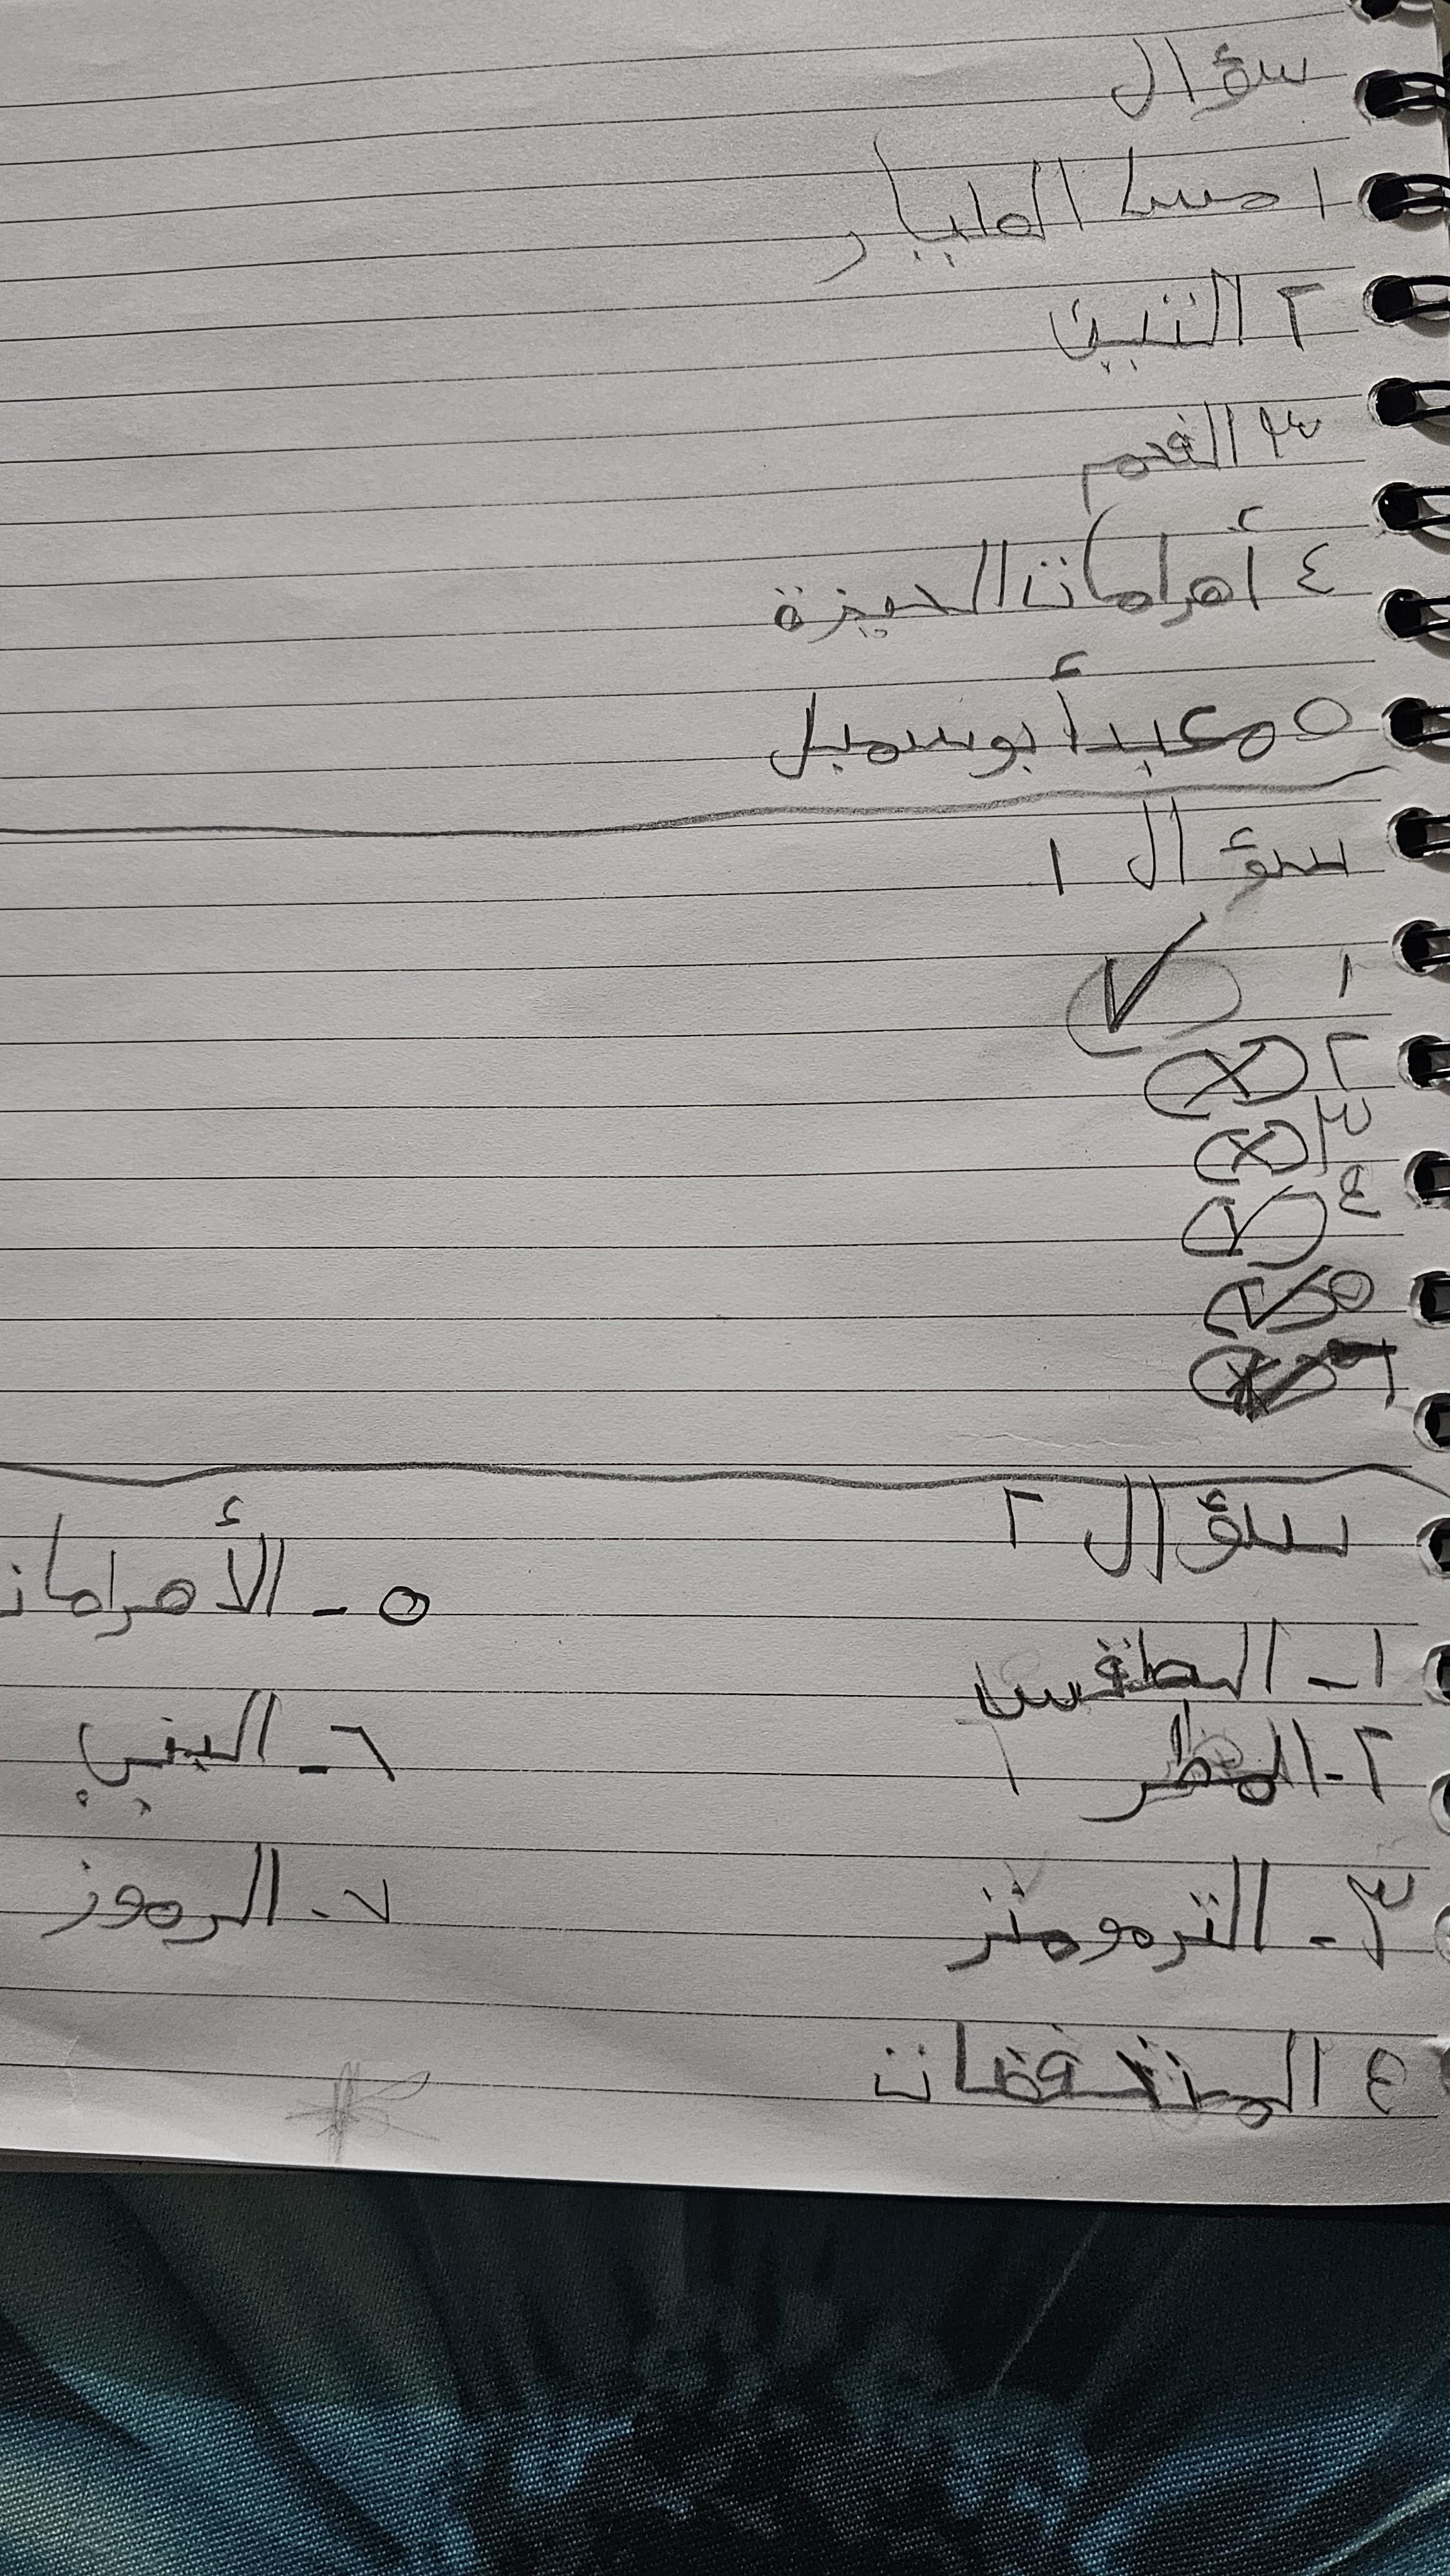 سؤال
١ حسا الطيار
٢ التنين
٣ القدم
٤ أهرامات الجيزة
٥ معبد أبو سمبل
سؤال ١
١ (✓)
٢ (X)
٣ (X)
٤ (✓)
٥ (✓)
سؤال ٢
١ - الطقس
٢ - المطر
٣ - الترمومتر
٤ المنخفضات
٥ - الأهرامات
٦ - البني
٧ - الرموز